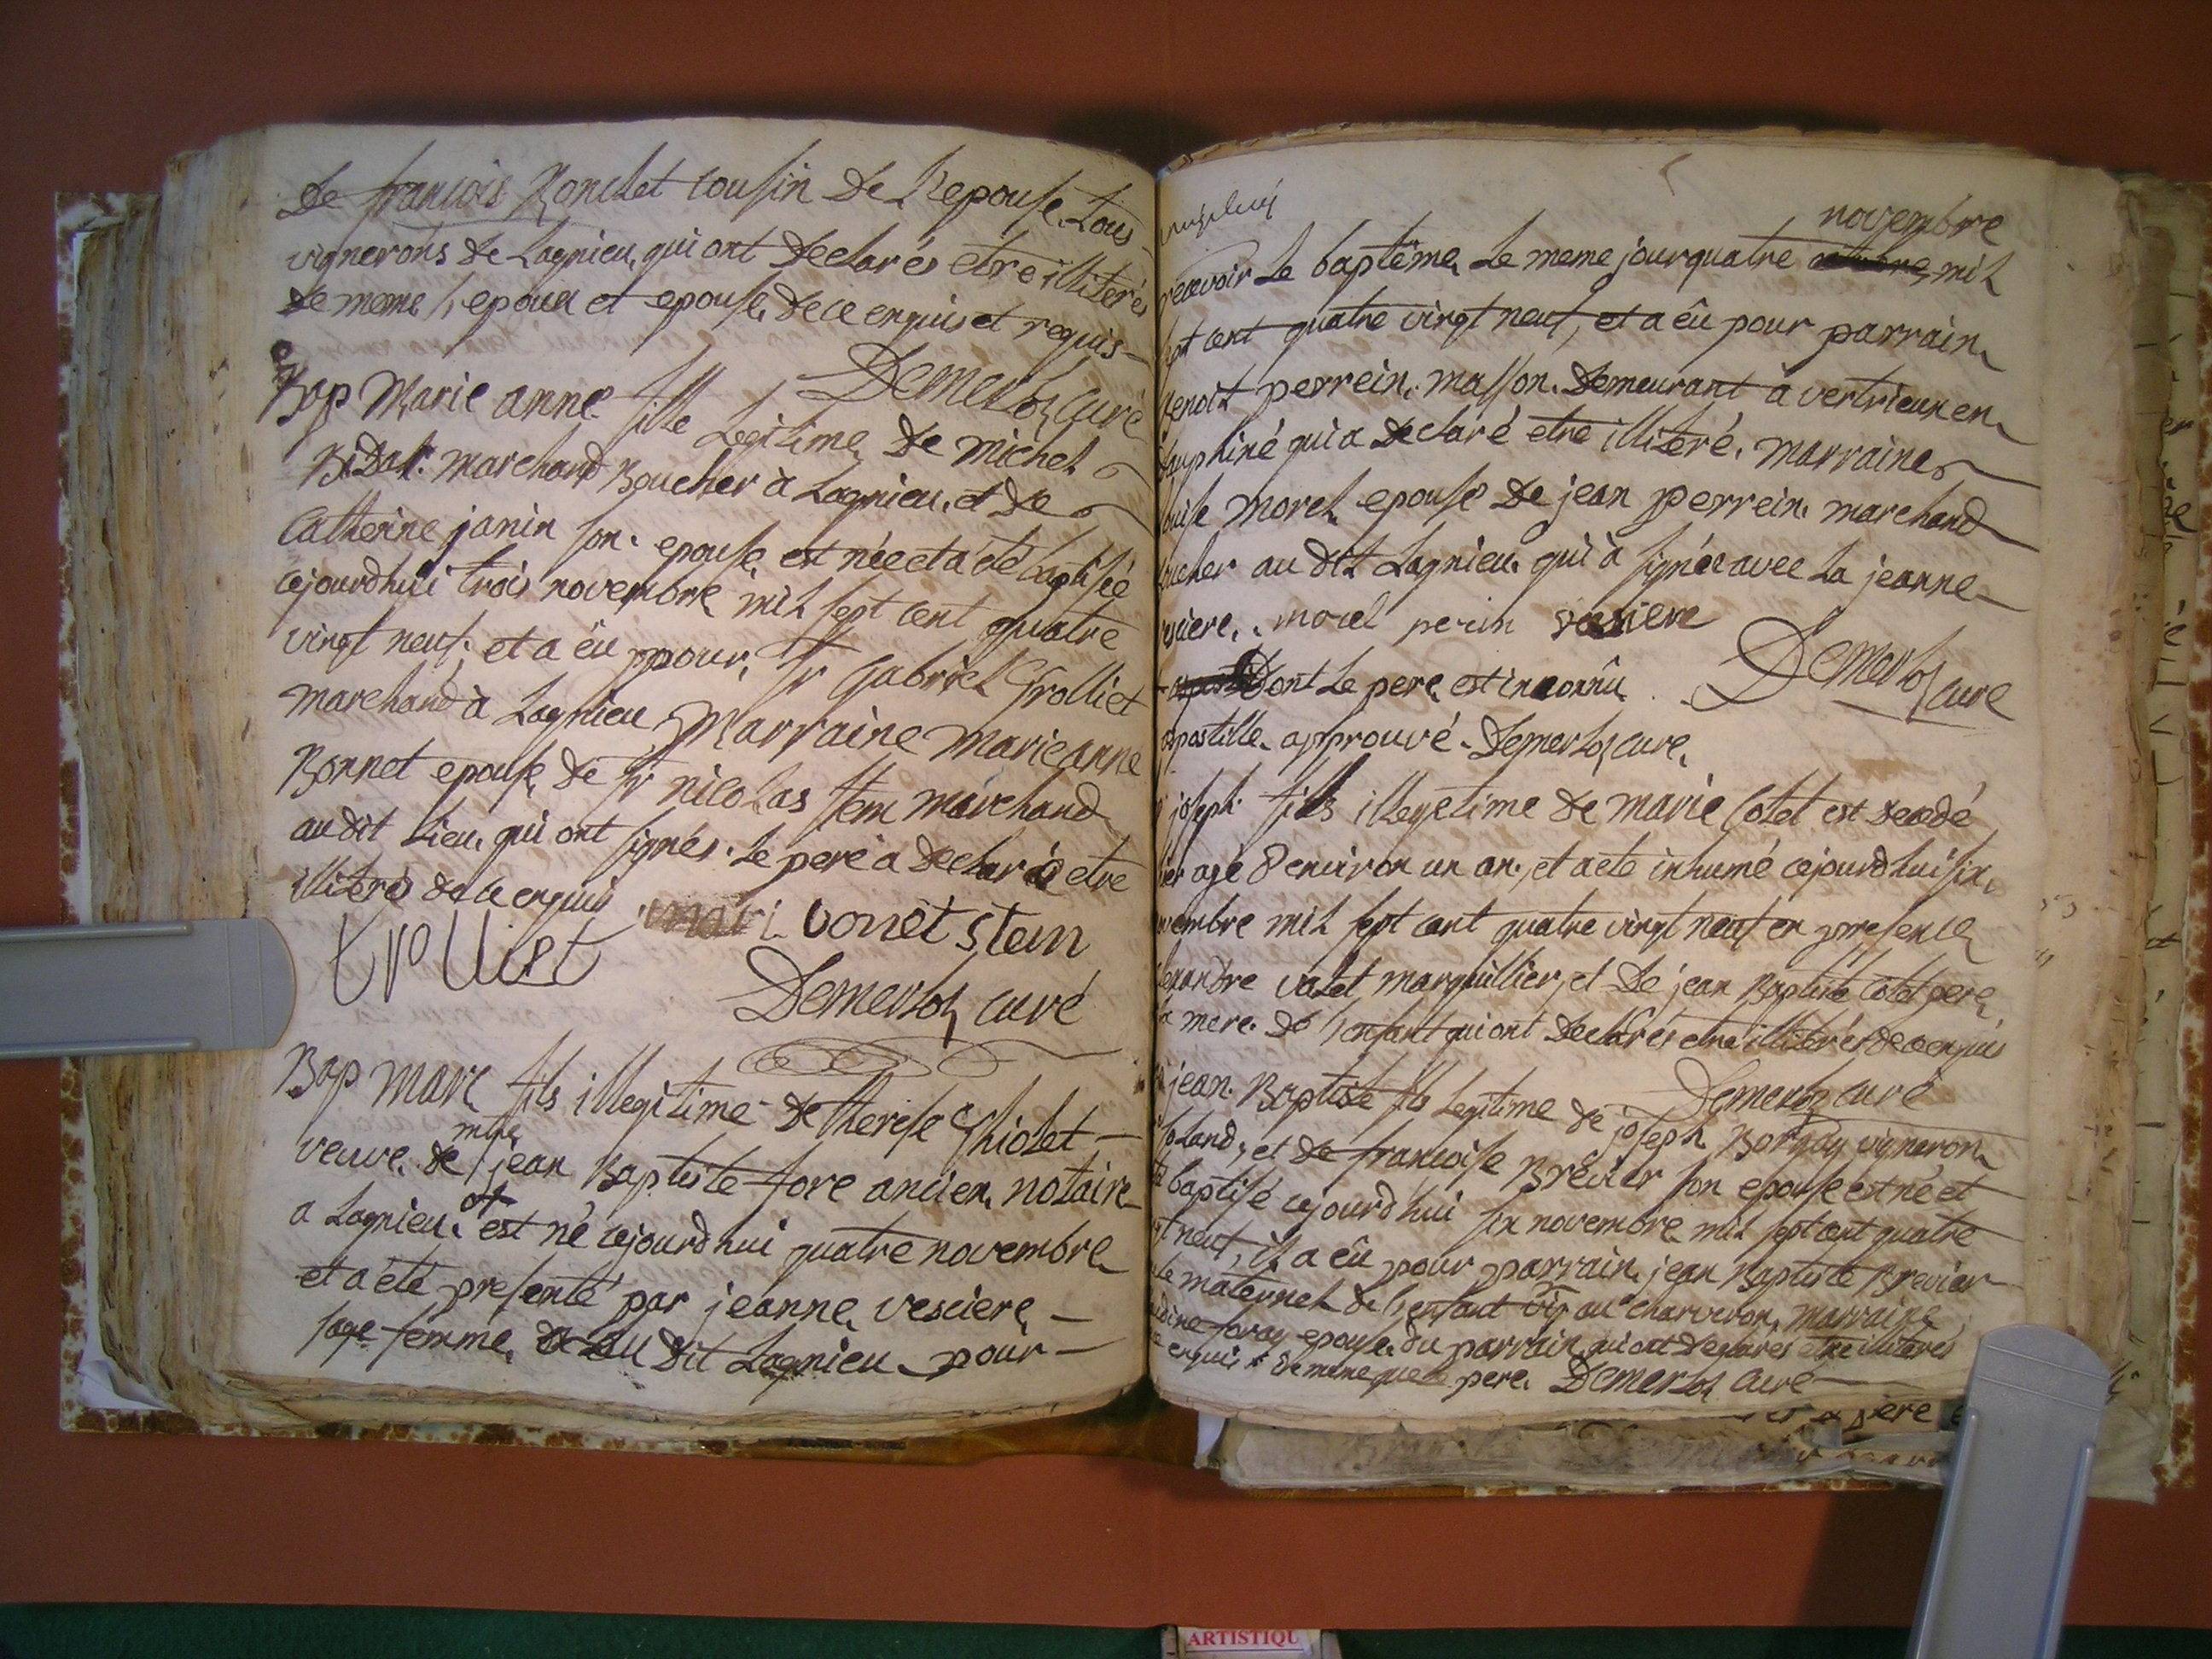 De francois Ronchet cousin De L'epouse. tous
vignerons de Lagnieu, qui ont Declarés etre illiterés
de meme l'epoux et epouse, de ce enquis et requis
Demerloz curé
Bap Marie anne fille Legitime de michel
Bidal. marchand Boucher à Lagnieu, et de
Catherine janin son epouse est née et a été baptisée
cejourdhui trois novembre mil sept cent quatre
vingt neuf, et a eû ppour, Sr Gabriel Trolliet
marchand à Lagnieu Marraine marie anne
Bonnet epouse de Sr nicolas stem marchand
au dit Lieu, qui ont signés. le pere a declaré etre
illiteré de ce enquis
trolliet mari bonet stem
Demerloz curé
Bap Marc fils illegitime de therese Chiolet
veuve de me jean Baptiste fore ancien notaire
a Lagnieu. est né cejourdhui quatre novembre
et a été presenté par jeanne vesciere
sage femme, au dit Lagnieu pour
novembre
recevoir Le baptême Le meme jour quatre mil
sept cent quatre vingt neuf, et a eû pour parrain
benoit perrein. masson. Demeurant a vertrieu en
dauphiné qui a declaré etre illiteré. marraine
louise morel epouse de jean perrein. marchand
boucher au dit Lagnieu qui a signée avec La jeanne
vesciere. morel perin vesiere
Dont Le pere est inconnû. Demerloz cure
apostille approuvé. Demerloz cure.
joseph fils illegitime de marie Cotet est decedé
hier agé d'environ un an, et a ete inhumé cejourdhui six
novembre mil sept cent quatre vingt neuf en presence
alexandre valet marguillier, et de jean Baptiste Cotet pere
la mere de l'enfant qui ont declarés etre illiterés de ce enquis
Demerloz curé
jean Baptiste fils legitime de joseph vigneron
et de francoise Brevier son epouse est né et
baptisé cejourdhui six novembre mil sept cent quatre
vingt neuf, il a eû pour parrain jean Baptiste Brevier
oncle maternel de l'enfant vig au charveron, marraine
epouse du parrain qui ont declarés etre illiterés
enquis de meme que le pere. Demerloz curé
ARTISTIQU